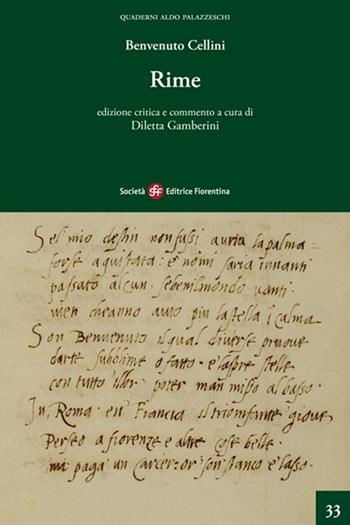 QUADERNI ALDO PALAZZESCHI
Benvenuto Cellini
Rime
edizione critica e commento a cura di
Diletta Gamberini
Società sff Editrice Fiorentina
Sel mio destin non fussi la palma
forse aquistata: e nomi saria innanti
passato alcun. sebenilmondo vanti.
anno auto piu la stella i calma
Son Benvenuto ilqual diverse pruove
darte sublime o fatto. e laspre stelle
con tutto illor. poter man misso albasso.
In Roma. en Francia il trionfante giove
Perseo a fiorenze e altre cose belle.
mi paga un carcer: or son stanco e lasso.
33